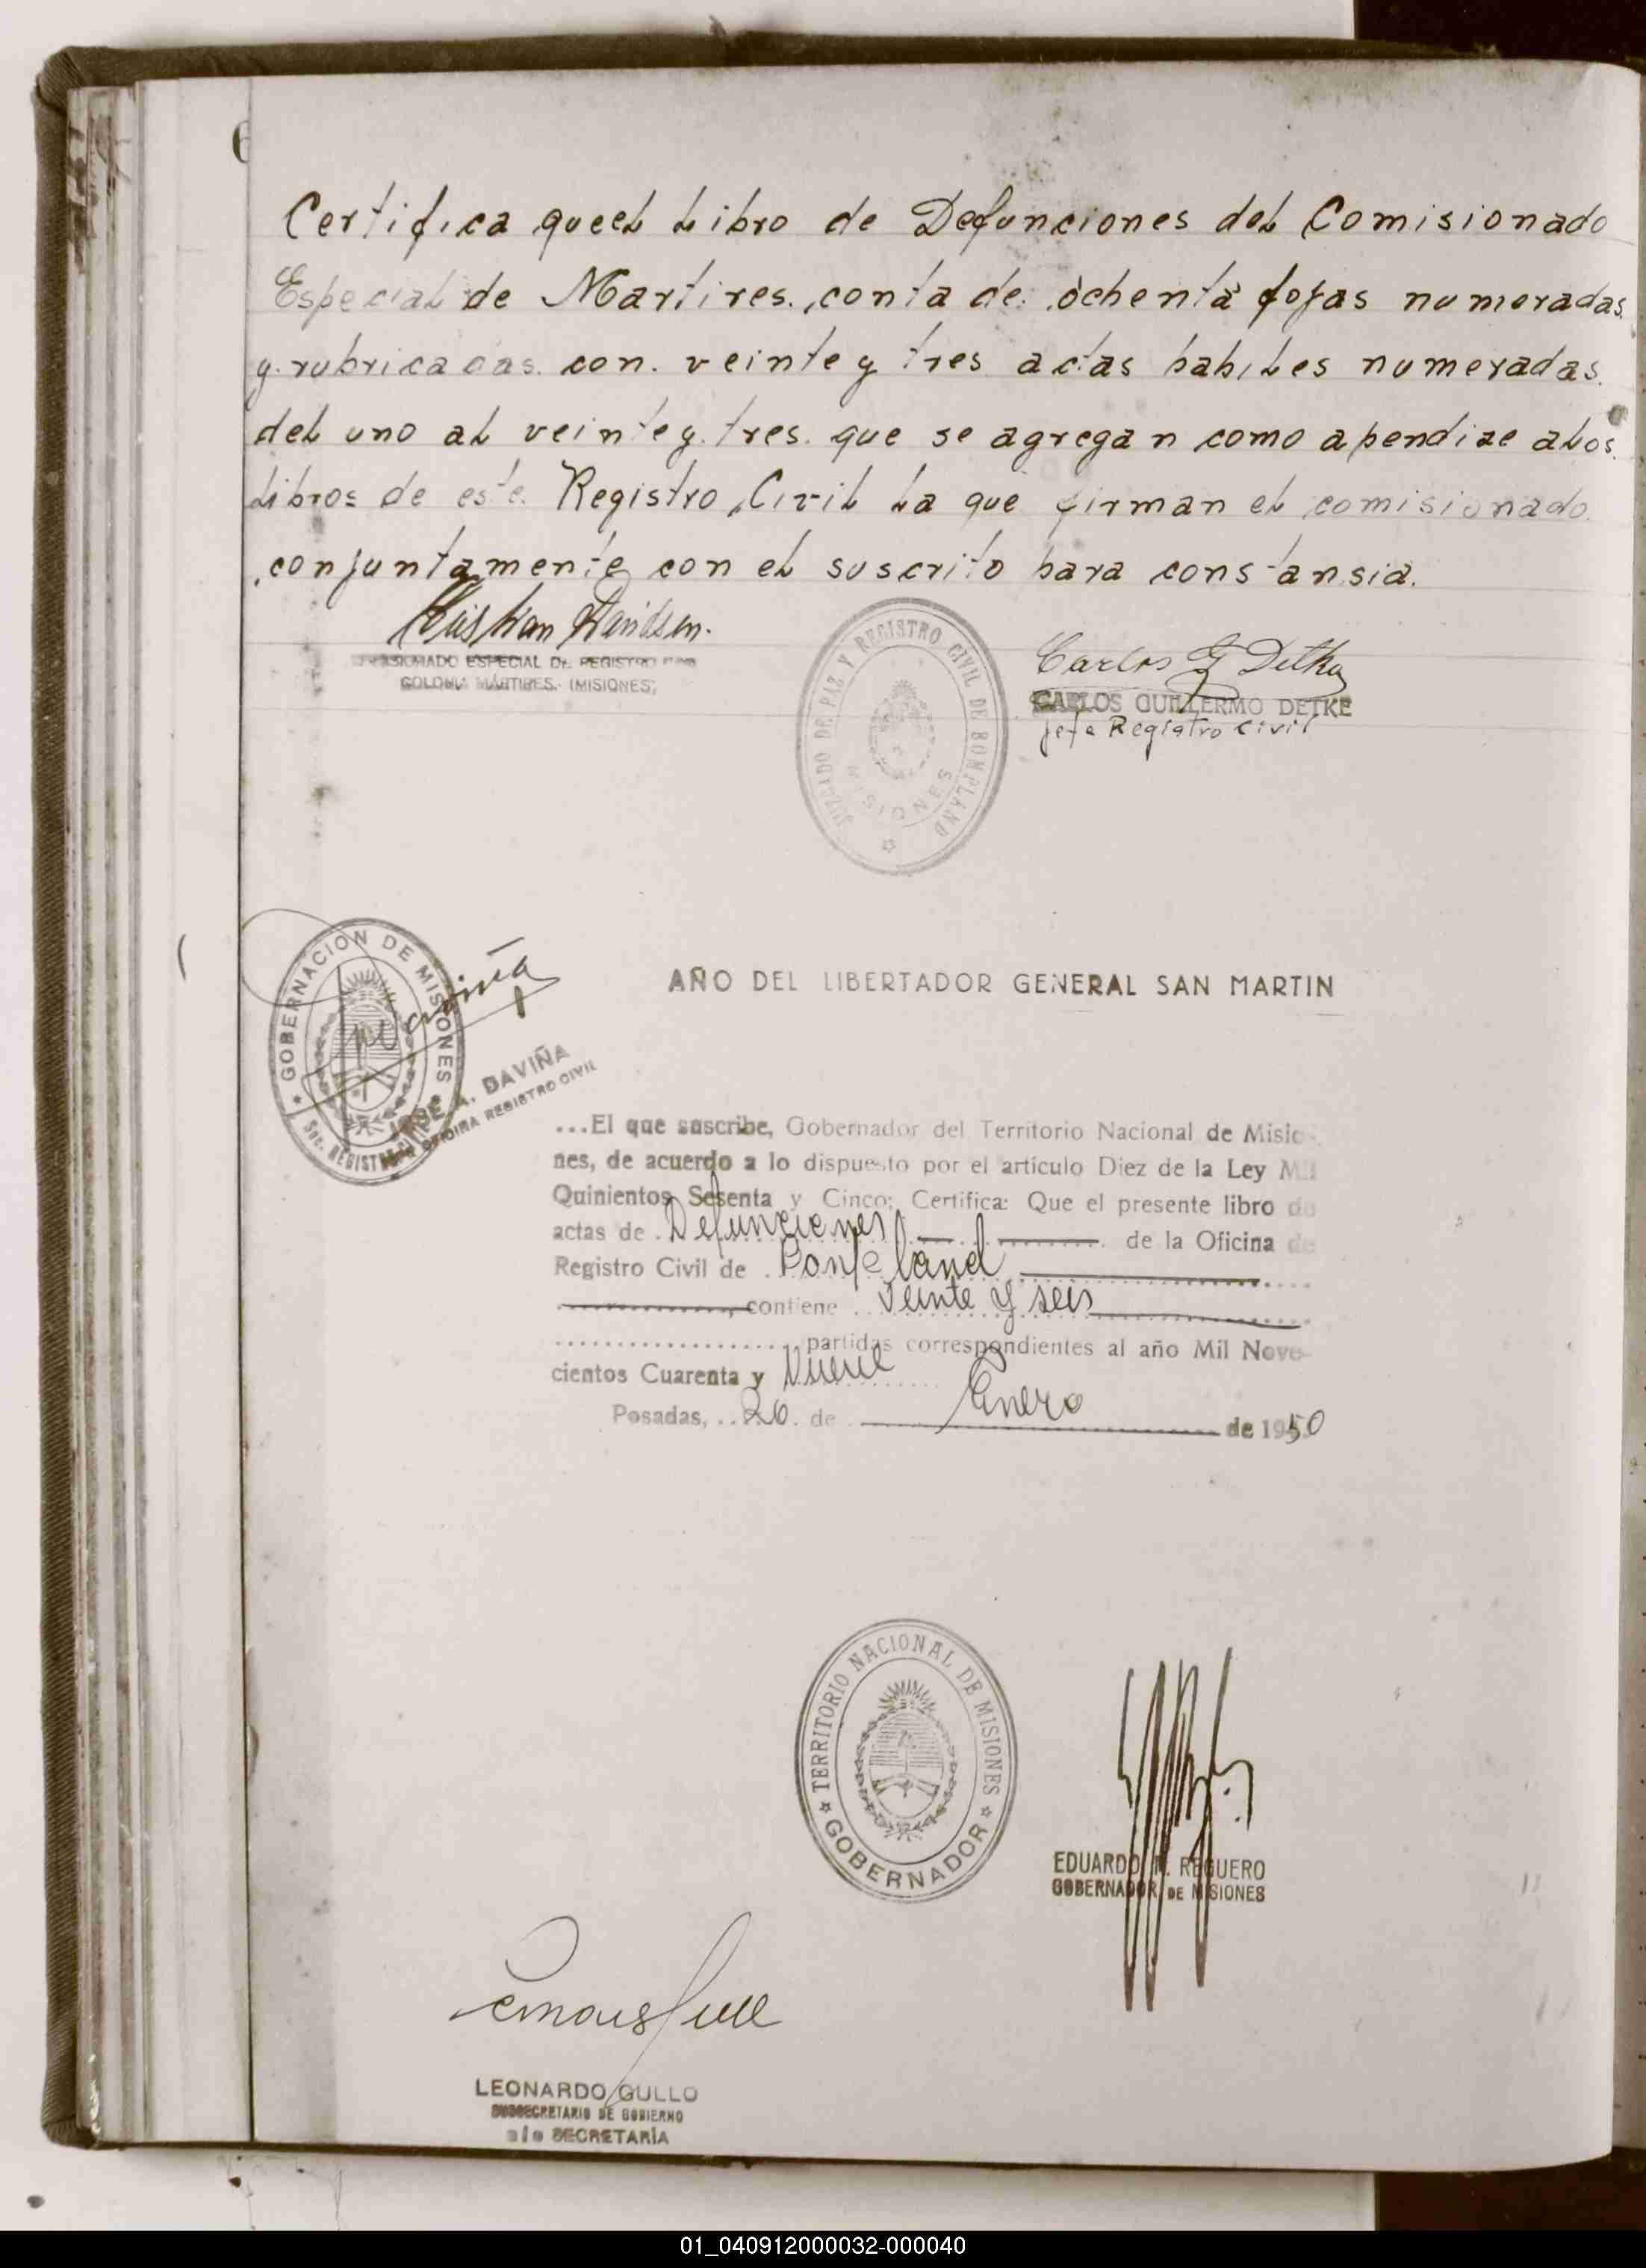 6
Certifica queel Libro de Defunciones del Comisionado
Especial de Martires, conta de ochenta fojas numeradas
y rubricadas con veinte y tres actas habiles numeradas
del uno al veinte y tres que se agregan como apendize alos
Libros de este Registro Civil La que firman el comisionado
conjuntamente con el suscrito para constansia.
COMISIONADO ESPECIAL DE REGISTRO
COLONIA MÁRTIRES. (MISIONES)
JUZGADO DE PAZ Y REGISTRO CIVIL DE BOMPLAND
MISIONES
Carlos G Detke
CARLOS GUILLERMO DETKE
Jefe Registro Civil
GOBERNACION DE MISIONES
Sec. REGISTRO CIVIL
JOSE A. DAVIÑA
OFICINA REGISTRO CIVIL
AÑO DEL LIBERTADOR GENERAL SAN MARTIN
...El que suscribe, Gobernador del Territorio Nacional de Misio-
nes, de acuerdo a lo dispuesto por el artículo Diez de la Ley Mil
Quinientos Sesenta y Cinco; Certifica: Que el presente libro de
actas de Defunciones de la Oficina de
Registro Civil de Bonpland
, contiene Veinte y seis
partidas correspondientes al año Mil Nove-
cientos Cuarenta y Nueve
Posadas, 26 de Enero de 1950
TERRITORIO NACIONAL DE MISIONES
GOBERNADOR
EDUARDO REGUERO
GOBERNADOR DE MISIONES
LEONARDO GULLO
SUBSECRETARIO DE GOBIERNO
a/c SECRETARÍA
01_040912000032-000040